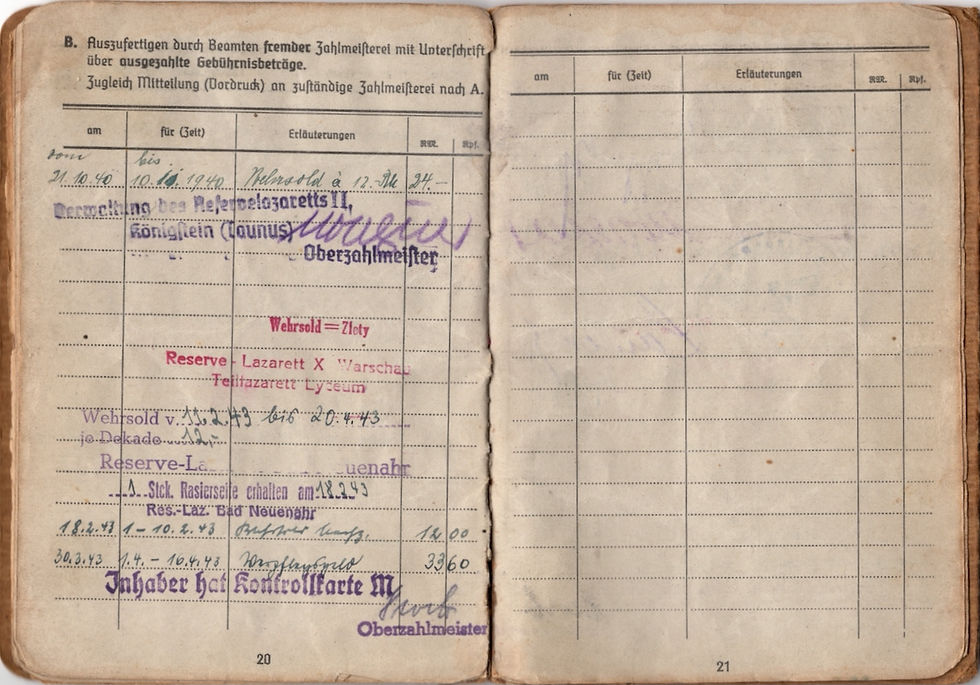 B. Auszufertigen durch Beamten fremder Zahlmeisterei mit Unterschrift
über ausgezahlte Gebührnisbeträge.
Zugleich Mitteilung (Vordruck) an zuständige Zahlmeisterei nach A.
am für (Zeit) Erläuterungen RM. Rpf.
vom bis
21.10.40 10. 1940 Wehrsold à 12.- 24.-
Verwaltung des Reservelazaretts II,
Königstein (Taunus)
Oberzahlmeister
Wehrsold = Zloty
Reserve-Lazarett X Warschau
Teillazarett Lyceum
Wehrsold v. 11.2.43 bis 20.4.43
je Dekade 12,-
Reserve-La uenahr
1 Stck. Rasierseife erhalten am 18.2.43
Res.-Laz. Bad Neuenahr
18.2.43 1-10.2.43 Wehrsold 12 00
30.3.43 1.4. - 16.4.43 Verpflegsgeld 33 60
Inhaber hat Kontrollkarte M
Oberzahlmeister
20
am für (Zeit) Erläuterungen RM. Rpf.
21